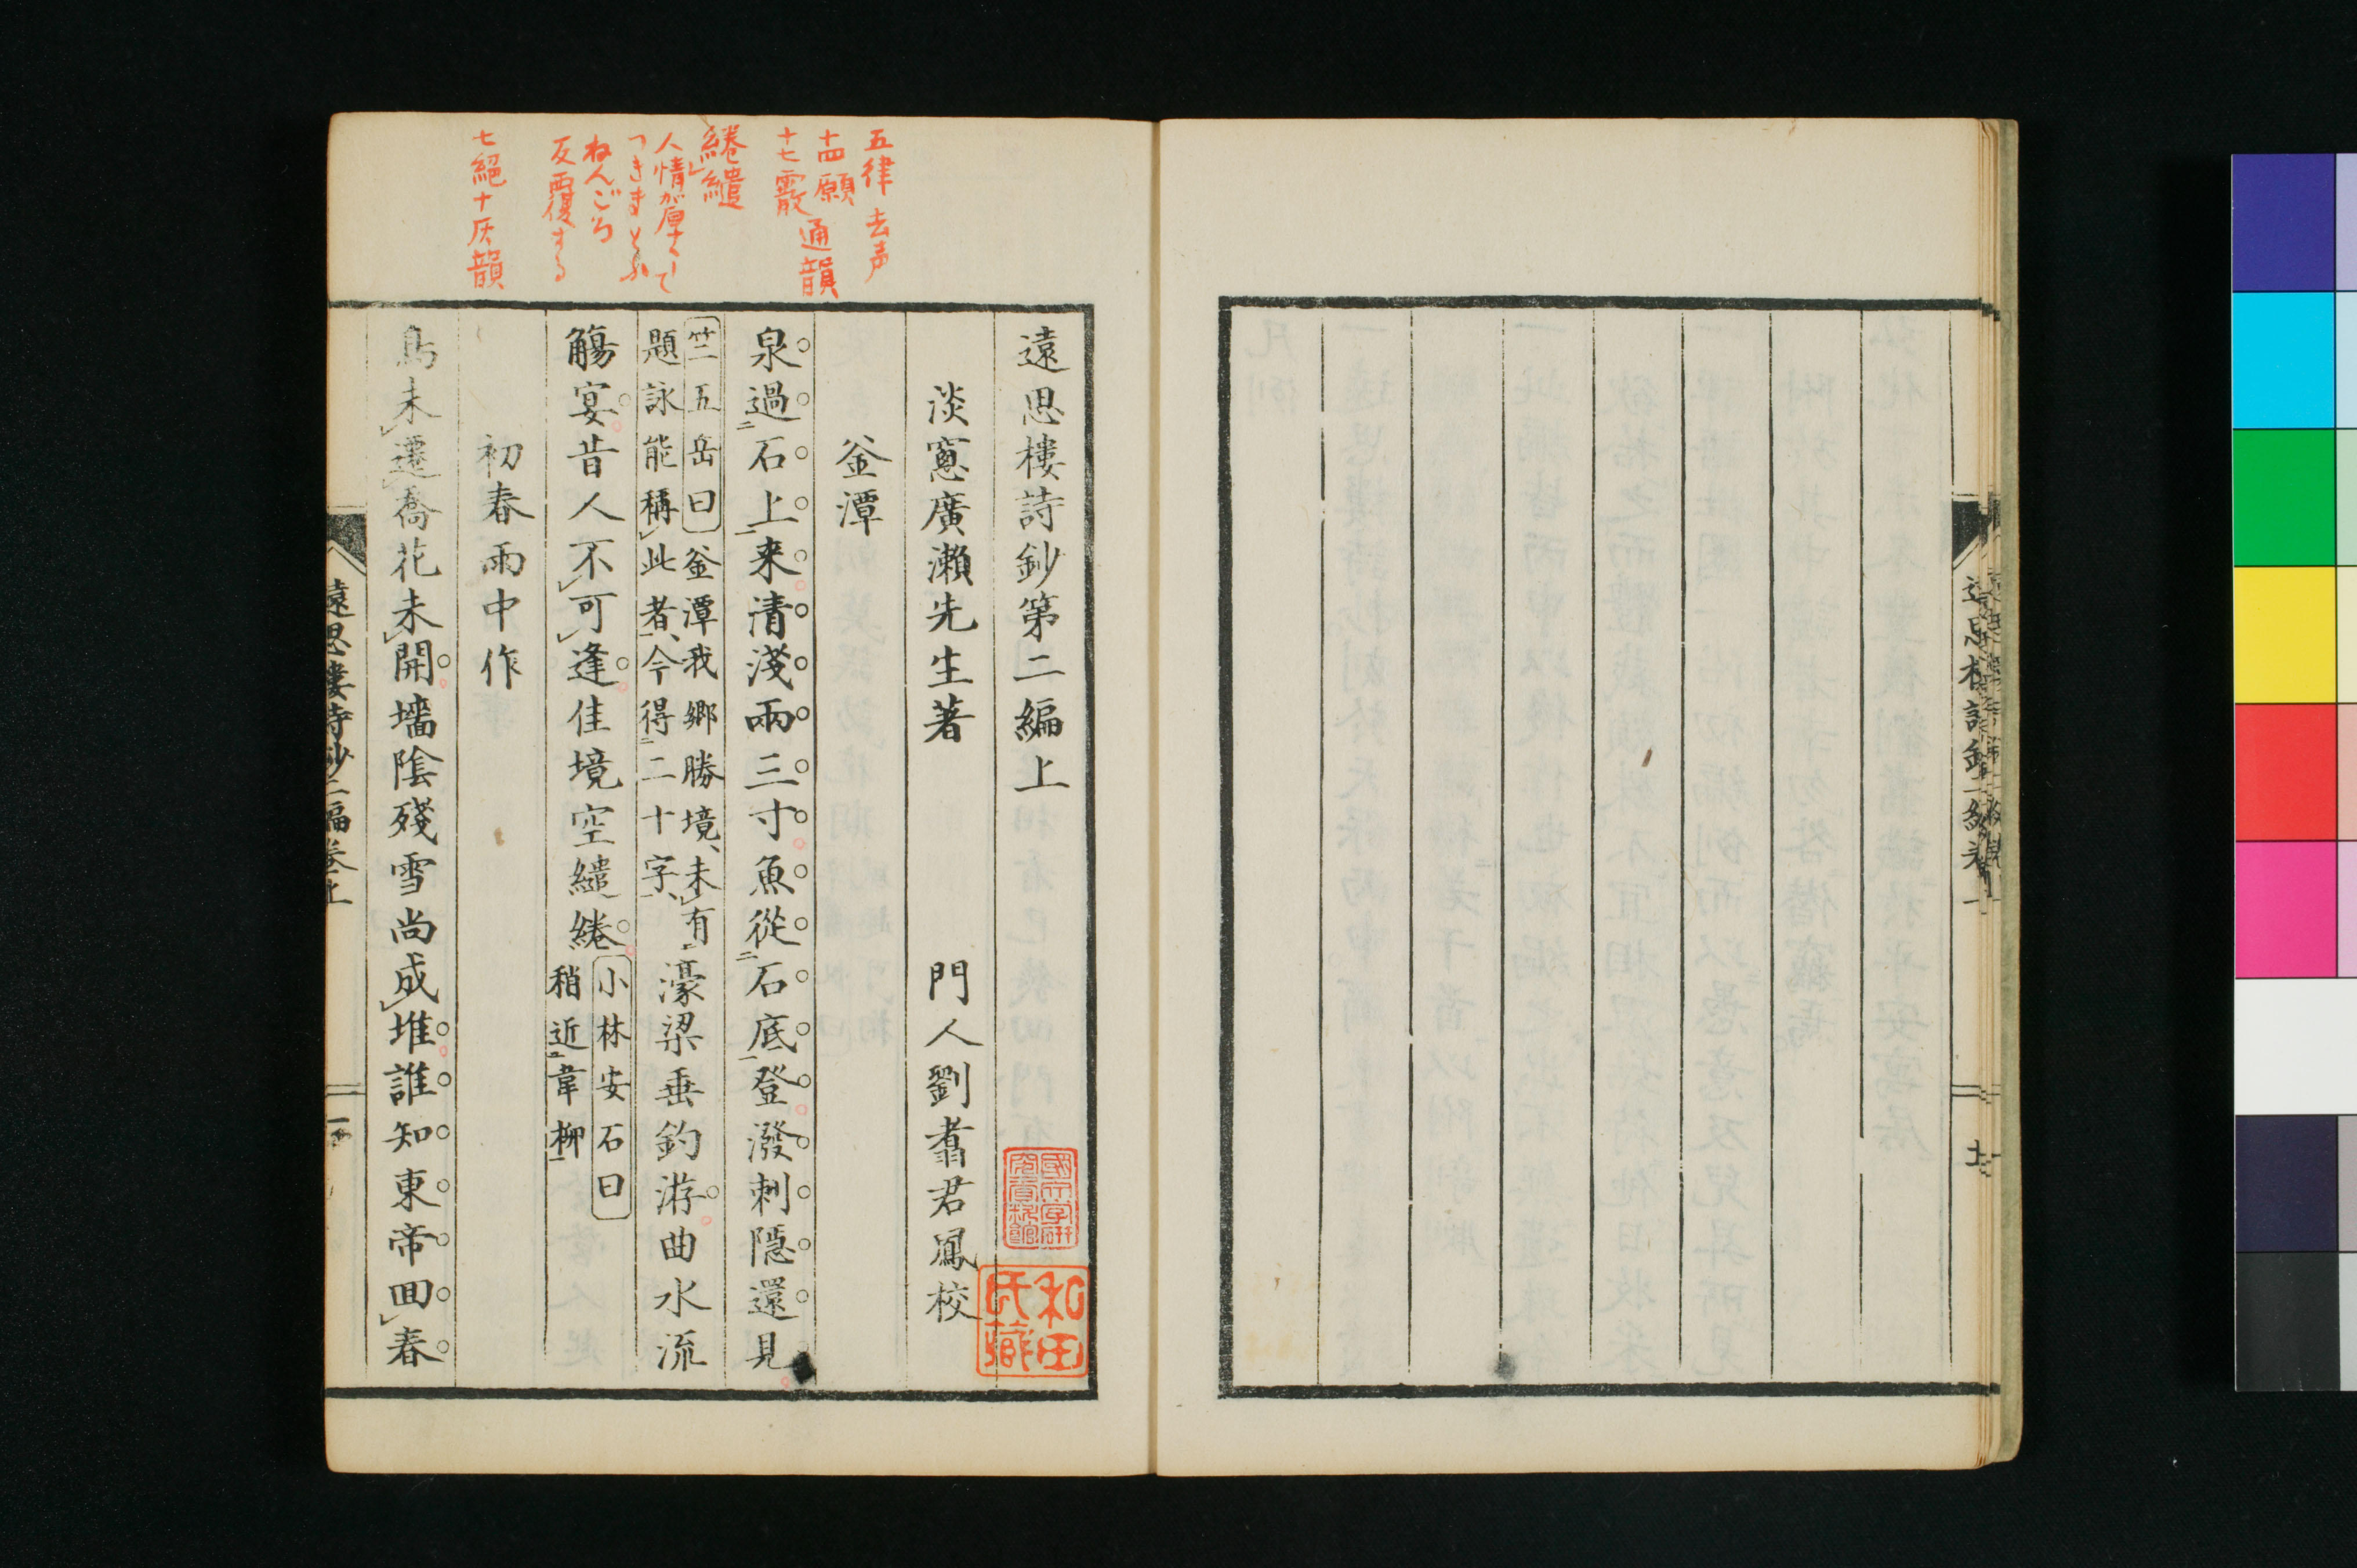 遠思樓詩鈔第二編上
淡窻廣瀨先生著 門人劉翥君鳳校
釜潭
泉過二石上一来清淺兩三寸魚從二石底一登潑刺隱還見
竺五岳曰釜潭我鄉勝境、未有二
題詠能稱此者一、今得二二十字一、
濠梁垂釣游曲水流
觴宴昔人不可逢佳境空繾綣
小林安石曰
稍近二韋柳一
初春雨中作
鳥未遷喬花未開墻陰殘雪尚成堆誰知東帝回春
遠思樓詩鈔二編卷上 一
五律去声
十四願
十七霰
通韻
綣繾
人情が厚くして
つきまとふ
ねんごろ
反覆する
七絕十灰韻
和田氏藏